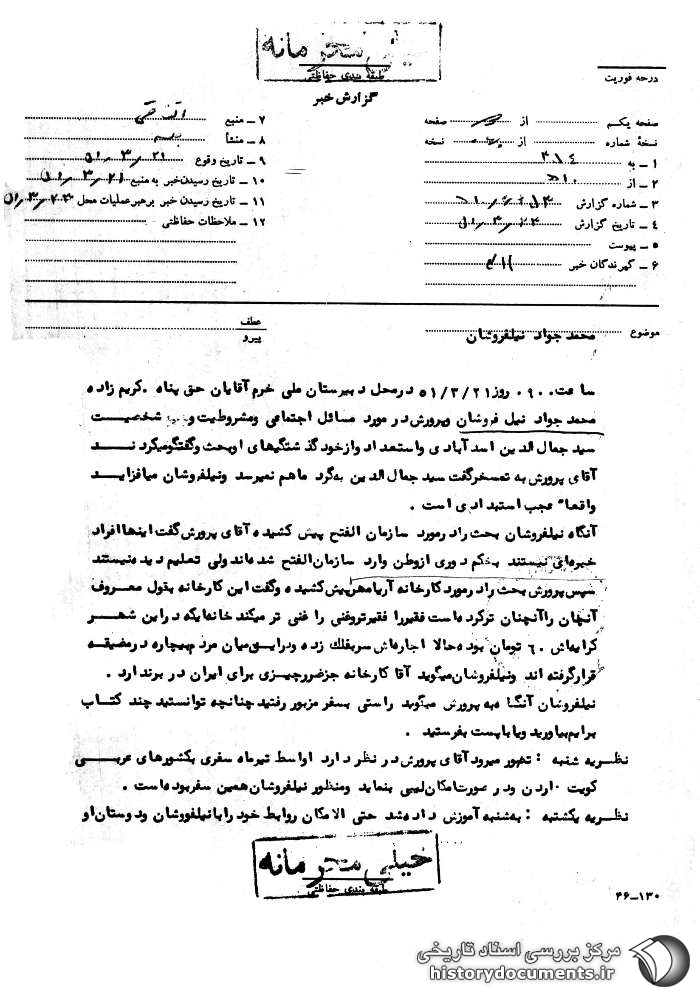 خیلی محرمانه
طبقه بندی حفاظتی
درجه فوریت
گزارش خبر
صفحه یکم از صفحه
نسخهٔ شماره از نسخه
۱ – به ۳۱٤
۲ – از
۳ – شماره گزارش
٤ – تاریخ گزارش
۵ – پیوست
۶ – گیرندگان خبر
۷ – منبع
۸ – منشأ
۹ – تاریخ وقوع ۵۱/۳/۲۱
۱۰ – تاریخ رسیدن خبر به منبع ۵۱/۳/۲۱
۱۱ – تاریخ رسیدن خبر برهبر عملیات محل ۵۱/۳/۲۳
۱۲ – ملاحظات حفاظتی
موضوع محمد جواد نیلفروشان
عطف
پیرو
ساعت ۰۹۰۰ روز ۵۱/۳/۲۱ در محل دبیرستان ملی خرم آقایان حق پناه . کریم زاده
محمد جواد نیل فروشان وپرورش در مورد مسائل اجتماعی ومشروطیت و شخصیت
سید جمال الدین اسد آبادی واستعداد وازخود گذشتگیهای او بحث وگفتگو میکردند
آقای پرورش به تمسخر گفت سید جمال الدین به گرد ماهم نمیرسد ونیلفروشان میافزاید
واقعا" عجب استبدادی است .
آنگاه نیلفروشان بحث را در مورد سازمان الفتح پیش کشیده آقای پرورش گفت اینها افراد
خبره‌ای نیستند بحکم دوری از وطن وارد سازمان الفتح شده‌اند ولی تعلیم دیده نیستند
سپس پرورش بحث را در مورد کارخانه آریامهر پیش کشیده وگفت این کارخانه بقول معروف
آنچنان را آنچنان تر کرده است فقیر را فقیرتر وغنی را غنی تر میکند خانه‌ایکه در این شهر
کرایه‌اش ۶۰ تومان بوده حالا اجاره‌اش سربفلک زده ودر این میان مردم بیچاره در مضیقه
قرار گرفته اند ونیلفروشان میگوید آقا کارخانه جز ضرر چیزی برای ایران در بر ندارد .
نیلفروشان آنگاه به پرورش میگوید راستی بسفر مزبور رفتید چنانچه توانستید چند کتاب
برایم بیاورید ویا با پست بفرستید .
نظریه شنبه : تصور میرود آقای پرورش در نظر دارد اواسط تیرماه سفری بکشورهای عربی
کویت ۰ اردن ودر صورت امکان لیبی بنماید ومنظور نیلفروشان همین سفر بوده است .
نظریه یکشنبه : به شنبه آموزش داده شد حتی الامکان روابط خود را با نیلفروشان ودوستان او
خیلی محرمانه
طبقه بندی حفاظتی
۴۶–۱۳۰
مرکز بررسی اسناد تاریخی
historydocuments.ir